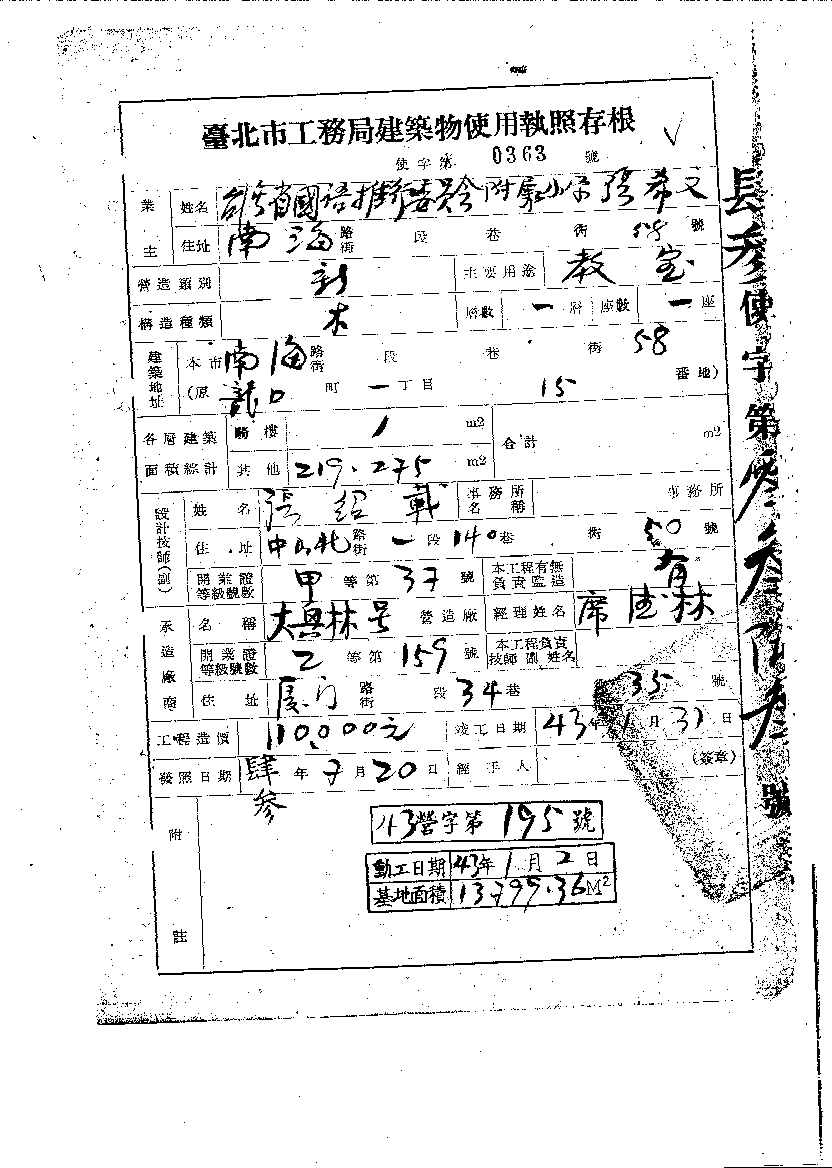 臺北市工務局建築物使用執照存根
使字第 0363 號
業主 姓名 台灣省國語推行委員會附屬小學張希文
住址 南海 路街 段 巷 衖 58 號
營造類別 新 主要用途 教室
構造種類 木 層數 一 層 座數 一 座
建築地址 本市 南海 路街 段 巷 衖 58
(原 龍口 町 一 丁目 15 番地)
各層建築面積綜計 騎樓 / m2 合計 m2
其他 219.275 m2
設計技師(副) 姓名 張紹載 事務所名稱 事務所
住址 中山北 路街 一 段 140 巷 衖 50 號
開業證等級號數 甲 等第 37 號 本工程有無負責監造 有
承造廠商 名稱 大興林号 營造廠 經理姓名 席德林
開業證等級號數 乙 等第 159 號 本工程負責技師副姓名
住址 廈门 路街 段 34 巷 35 號
工程造價 110,000元 竣工日期 43年 1月 31日
發照日期 肆參 年 7 月 20 日 經手人 (簽章)
附註
43營字第 195 號
動工日期 43年 1月 2日
基地面積 13799.36 M²
使字第 號